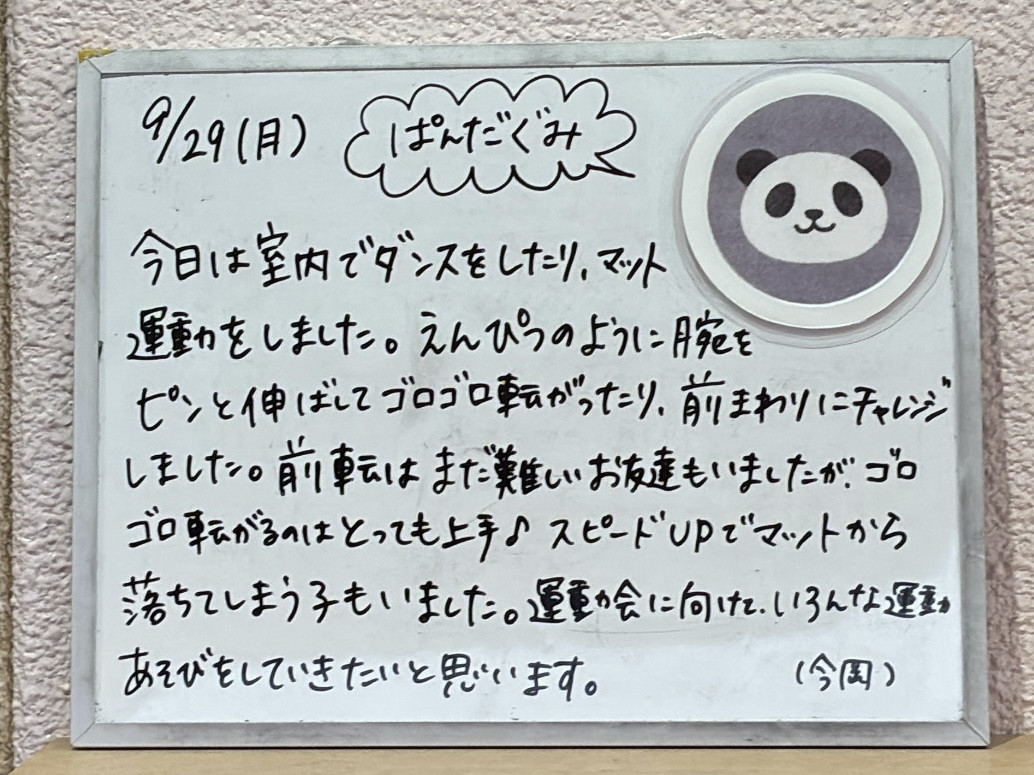 9/29(月)
ぱんだぐみ
今日は室内でダンスをしたり、マット
運動をしました。えんぴつのように腕を
ピンと伸ばしてゴロゴロ転がったり、前まわりにチャレンジ
しました。前転はまだ難しいお友達もいましたが、ゴロ
ゴロ転がるのはとっても上手♪スピードUPでマットから
落ちてしまう子もいました。運動会に向けて、いろんな運動
あそびをしていきたいと思います。
(今岡)